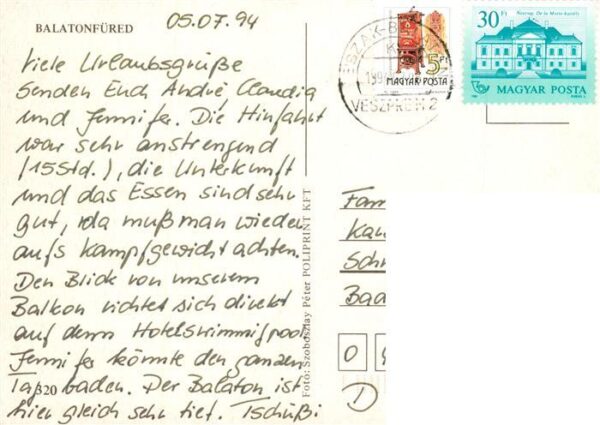 BALATONFÜRED
05.07.94
Viele Urlaubsgrüße
senden Euch André, Claudia
und Jennifer. Die Hinfahrt
war sehr anstrengend
(15 Std.), die Unterkunft
und das Essen sind sehr
gut, da muß man wieder
aufs Kampfgewicht achten.
Den Blick von unserem
Balkon richtet sich direkt
auf denn Hotelswimmigpool
Jennifer könnte den ganzen
Tag baden. Der Balaton ist
hier gleich sehr tief. Tschüßi
320
Foto: Szoboszlay Péter POLIPRINT KFT
ÉSZAK-B
VESZPRÉM 2
5 Ft
MAGYAR POSTA
30 Ft
MAGYAR POSTA
Fam
Kau
Schr
Bad
0
D